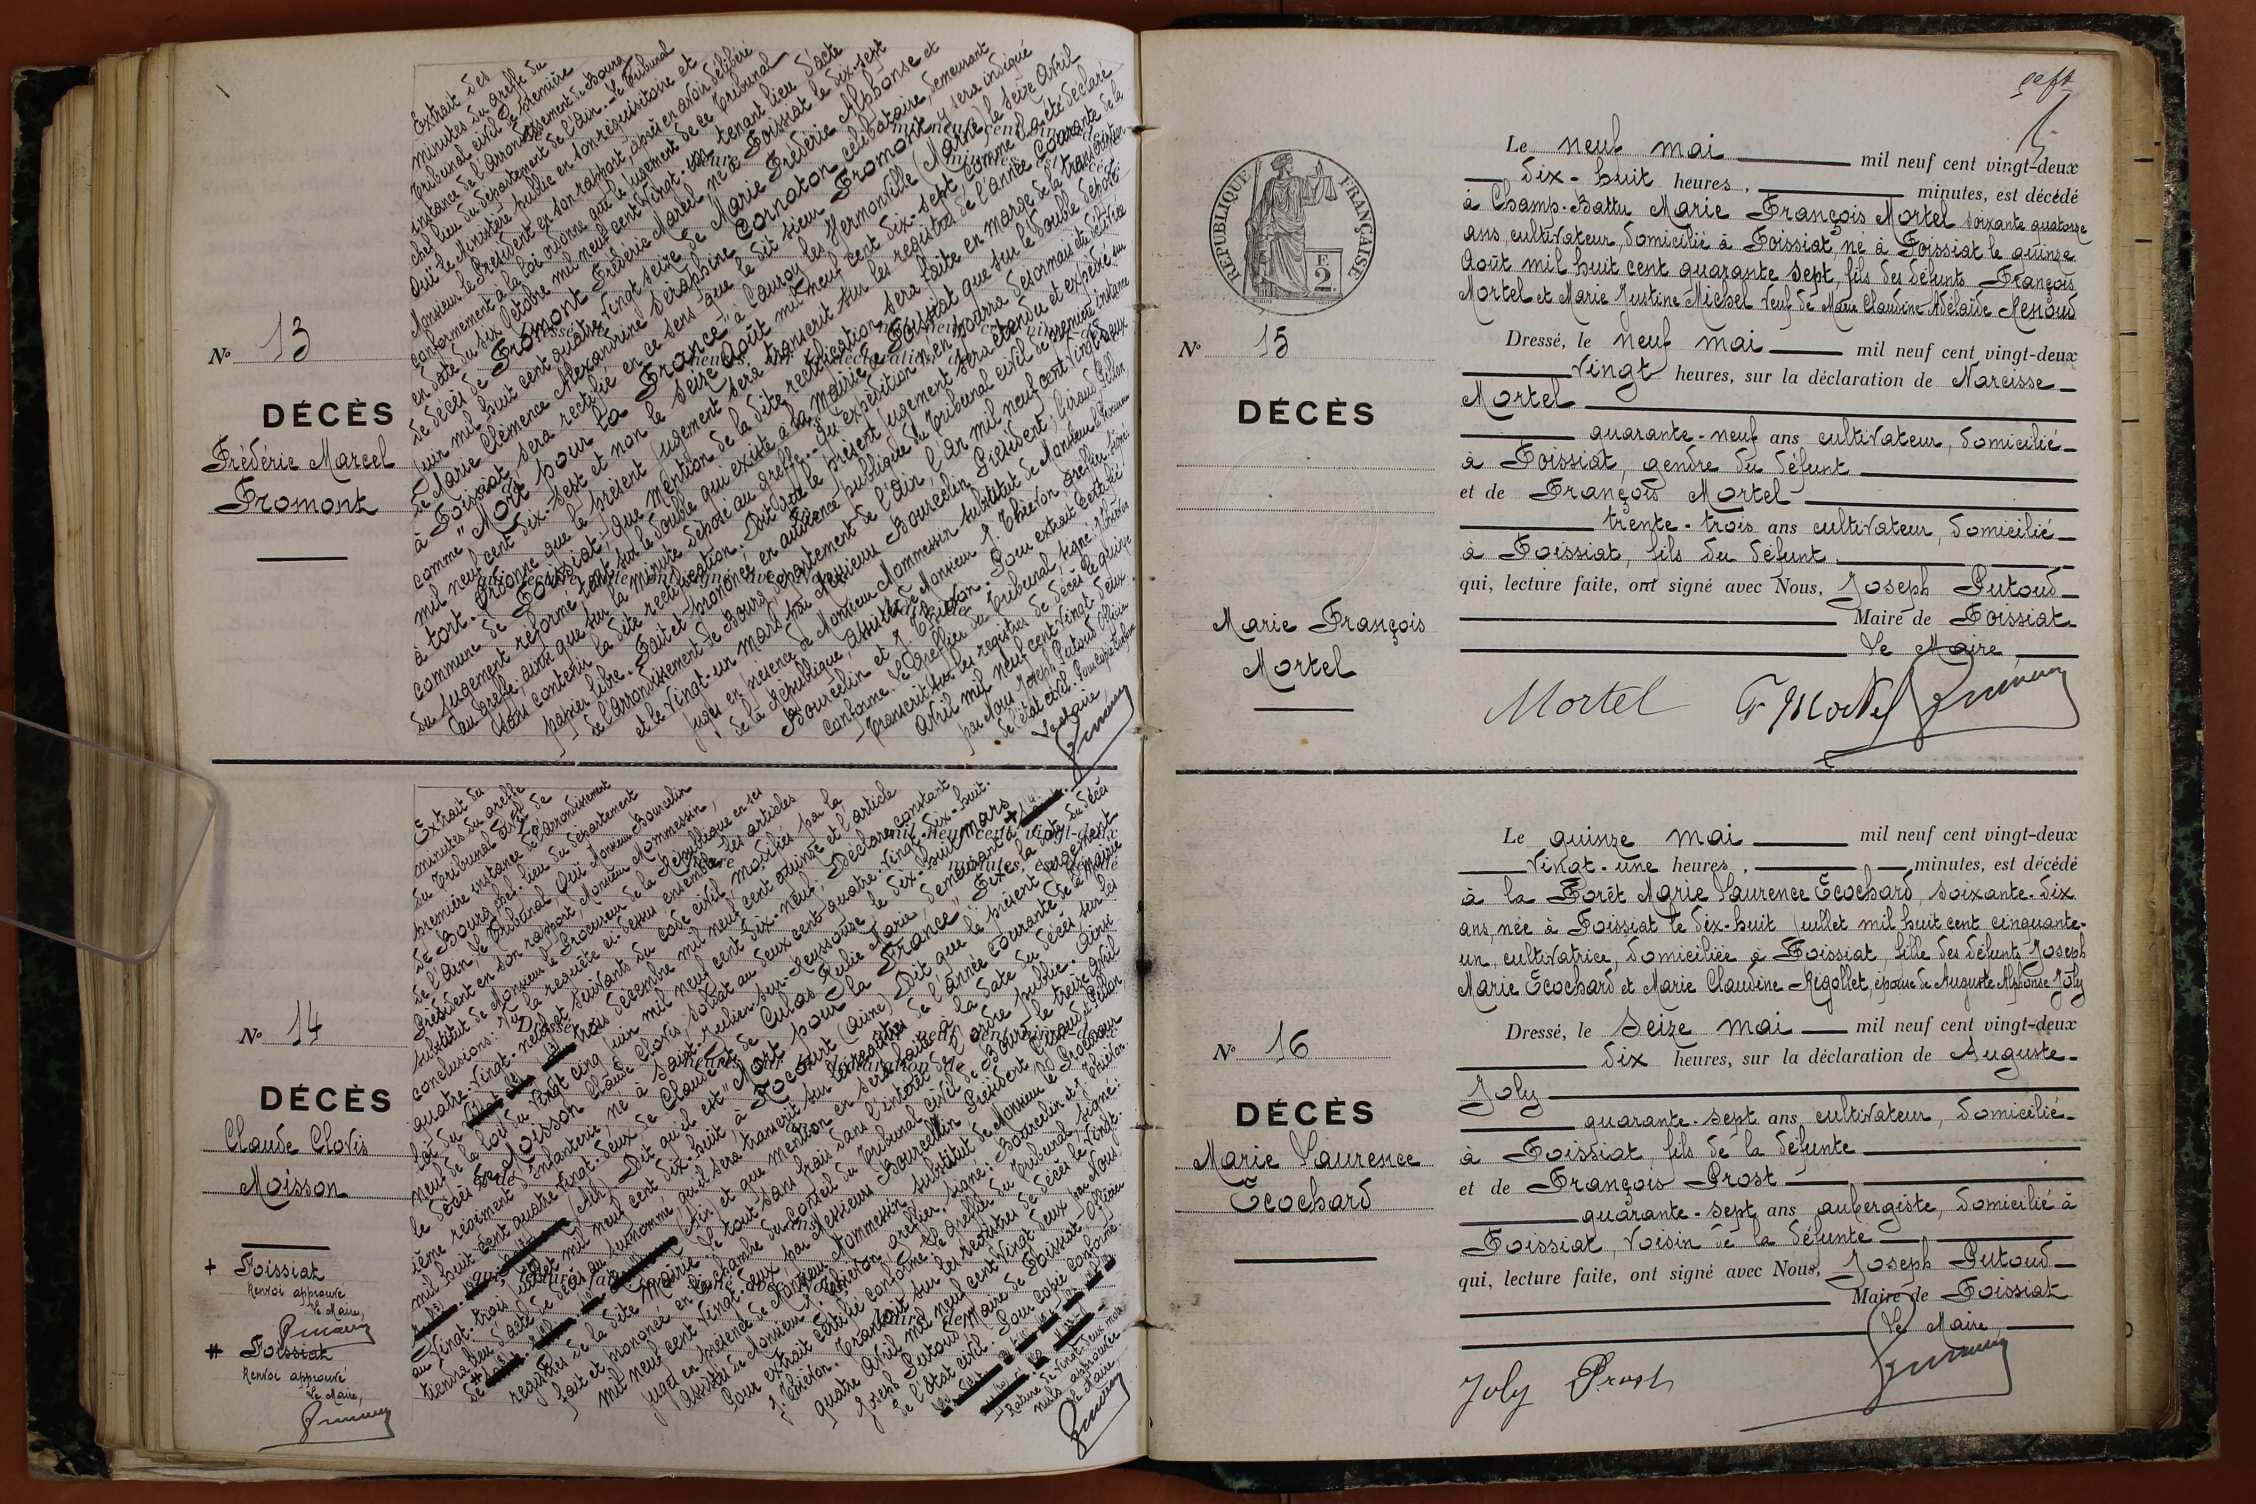 N° 13
DÉCÈS
Frédéric Marcel
Fromont
Extrait des
minutes du greffe du
Tribunal civil de première
instance de l'arrondissement de Bourg
chef lieu du département de l'Ain. Le Tribunal
Ouï le Ministère public en son réquisitoire et
Monsieur le Président en son rapport, après en avoir délibéré
conformément à la loi ordonne que le jugement de ce Tribunal
en date du six octobre mil neuf cent vingt-un tenant lieu d'acte
de décès de Fromont Frédéric Marcel né à Foissiat le dix-sept
juin mil huit cent quatre vingt seize de Marie Frédéric Alphonse et
de Marie Clémence Alexandrine Séraphine Cornaton célibataire, demeurant
à Foissiat sera rectifié en ce sens que le dit sieur Fromont y sera indiqué
comme "Mort pour la France" à Cauroy les Hermonville (Marne) le seize Avril
mil neuf cent dix-sept et non le seize Août mil neuf cent dix-sept comme il a été déclaré
à tort. Ordonne que le présent jugement sera transcrit sur les registres de l'année courante de la
commune de Foissiat, que mention de la dite rectification sera faite en marge de la transcription
du jugement réformé tant sur le double qui existe à la mairie de Foissiat que sur le double déposé
au greffe, ainsi que sur la minute déposée au greffe. Qu'expédition n'en pourra désormais être délivrée
sans contenir la dite rectification. Dit que le présent jugement sera étendu et expédié sur
papier libre. Fait et prononcé en audience publique du Tribunal civil de première instance
de l'arrondissement de Bourg, département de l'Ain, l'an mil neuf cent vingt-deux
et le vingt-un mars par Messieurs Bourcelin Président, Giraud, Gillon
juges en présence de Monsieur Mommessin substitut de Monsieur le Procureur
de la République, assistés de Monsieur J. Thievon, greffier. Signé:
Bourcelin et J. Thievon. Pour extrait certifié
conforme. Le Greffier du Tribunal, signé: J. Thievon
Transcrit sur les registres de décès le quinze
Avril mil neuf cent vingt-deux
par Nous Joseph Putoud officier
de l'état civil. Pour copie conforme
Le Maire,
N° 14
DÉCÈS
Claude Clovis
Moisson
+ Foissiat
Renvoi approuvé
Le Maire,
# Foissiat
Renvoi approuvé
Le Maire,
Extrait des
minutes du greffe
du Tribunal civil de
première instance de l'arrondissement
de Bourg chef-lieu du département
de l'Ain Le Tribunal Ouï Monsieur Bourcelin
Président en son rapport, Monsieur Mommessin,
substitut de Monsieur le Procureur de la République en ses
conclusions: Vu la requête ci-dessus ensemble les articles
quatre-vingt-neuf et suivants du code civil modifiés par la
loi du trois décembre mil neuf cent quinze et l'article
neuf de la loi du vingt cinq juin mil neuf cent dix-neuf; Déclare constant
le décès de Moisson Claude Clovis, soldat au deux cent quatre-vingt-dix-huit-
ième régiment d'infanterie, né à Saint-Julien-sur-Reyssouze le dix-huit mars
mil huit cent quatre vingt-deux de Claude et de Cubas Julie Marie, demeurant à
(Ain) Dit qu'il est "Mort pour la France" Fixe la date du décès
au vingt-trois juillet mil neuf cent dix-huit, à Rocourt (Aisne) Dit que le présent jugement
tiendra lieu d'acte de décès au susnommé, qu'il sera transcrit sur les registres de l'année courante de la mairie
de (Ain) et que mention en sera faite à la date du décès sur les
registres de la dite Mairie. Le tout sans frais dans l'intérêt de l'ordre public. Ainsi
fait et prononcé en la chambre du Conseil du Tribunal civil de Bourg, le treize avril
mil neuf cent vingt-deux par Messieurs Bourcelin Président Giraud & Gillon
juges en présence de Monsieur Mommessin substitut de Monsieur le Procureur
Assistés de Monsieur J. Thievon greffier, signé: Bourcelin et J. Thievon.
Pour extrait certifié conforme le greffier du Tribunal signé:
J. Thievon. Transcrit sur les registres de décès le vingt-
quatre Avril mil neuf cent vingt deux par Nous
Joseph Putoud Maire de Foissiat officier
de l'état civil. Pour copie conforme.
Rature de vingt-deux mots
nuls approuvée
Le Maire
N° 15
DÉCÈS
Marie François
Mortel
RÉPUBLIQUE FRANÇAISE
E
2
Le neuf mai mil neuf cent vingt-deux
dix-huit heures, minutes, est décédé
à Champ-Battu Marie François Mortel soixante quatorze
ans, cultivateur, domicilié à Foissiat, né à Foissiat le quinze
Août mil huit cent quarante sept, fils des défunts François
Mortel et Marie Justine Michel veuf de Marie Claudine Adélaïde Renoud
Dressé, le neuf mai mil neuf cent vingt-deux
vingt heures, sur la déclaration de Narcisse
Mortel
quarante-neuf ans cultivateur, domicilié
à Foissiat, gendre du défunt
et de François Mortel
trente-trois ans cultivateur, domicilié
à Foissiat, fils du défunt
qui, lecture faite, ont signé avec Nous, Joseph Putoud
Maire de Foissiat
Le Maire,
Mortel F Mortel
N° 16
DÉCÈS
Marie Laurence
Ecochard
Le quinze mai mil neuf cent vingt-deux
vingt-une heures, minutes, est décédé
à la Forêt Marie Laurence Ecochard soixante-dix
ans, née à Foissiat le dix-huit juillet mil huit cent cinquante-
un, cultivatrice, domiciliée à Foissiat, fille des défunts Joseph
Marie Ecochard et Marie Claudine Rigollet, épouse de Auguste Alphonse Joly
Dressé, le seize mai mil neuf cent vingt-deux
dix heures, sur la déclaration de Auguste
Joly
quarante-sept ans cultivateur, domicilié
à Foissiat, fils de la défunte
et de François Prost
quarante-sept ans aubergiste, domicilié à
Foissiat, voisin de la défunte
qui, lecture faite, ont signé avec Nous, Joseph Putoud
Maire de Foissiat
Le Maire,
Joly Prost